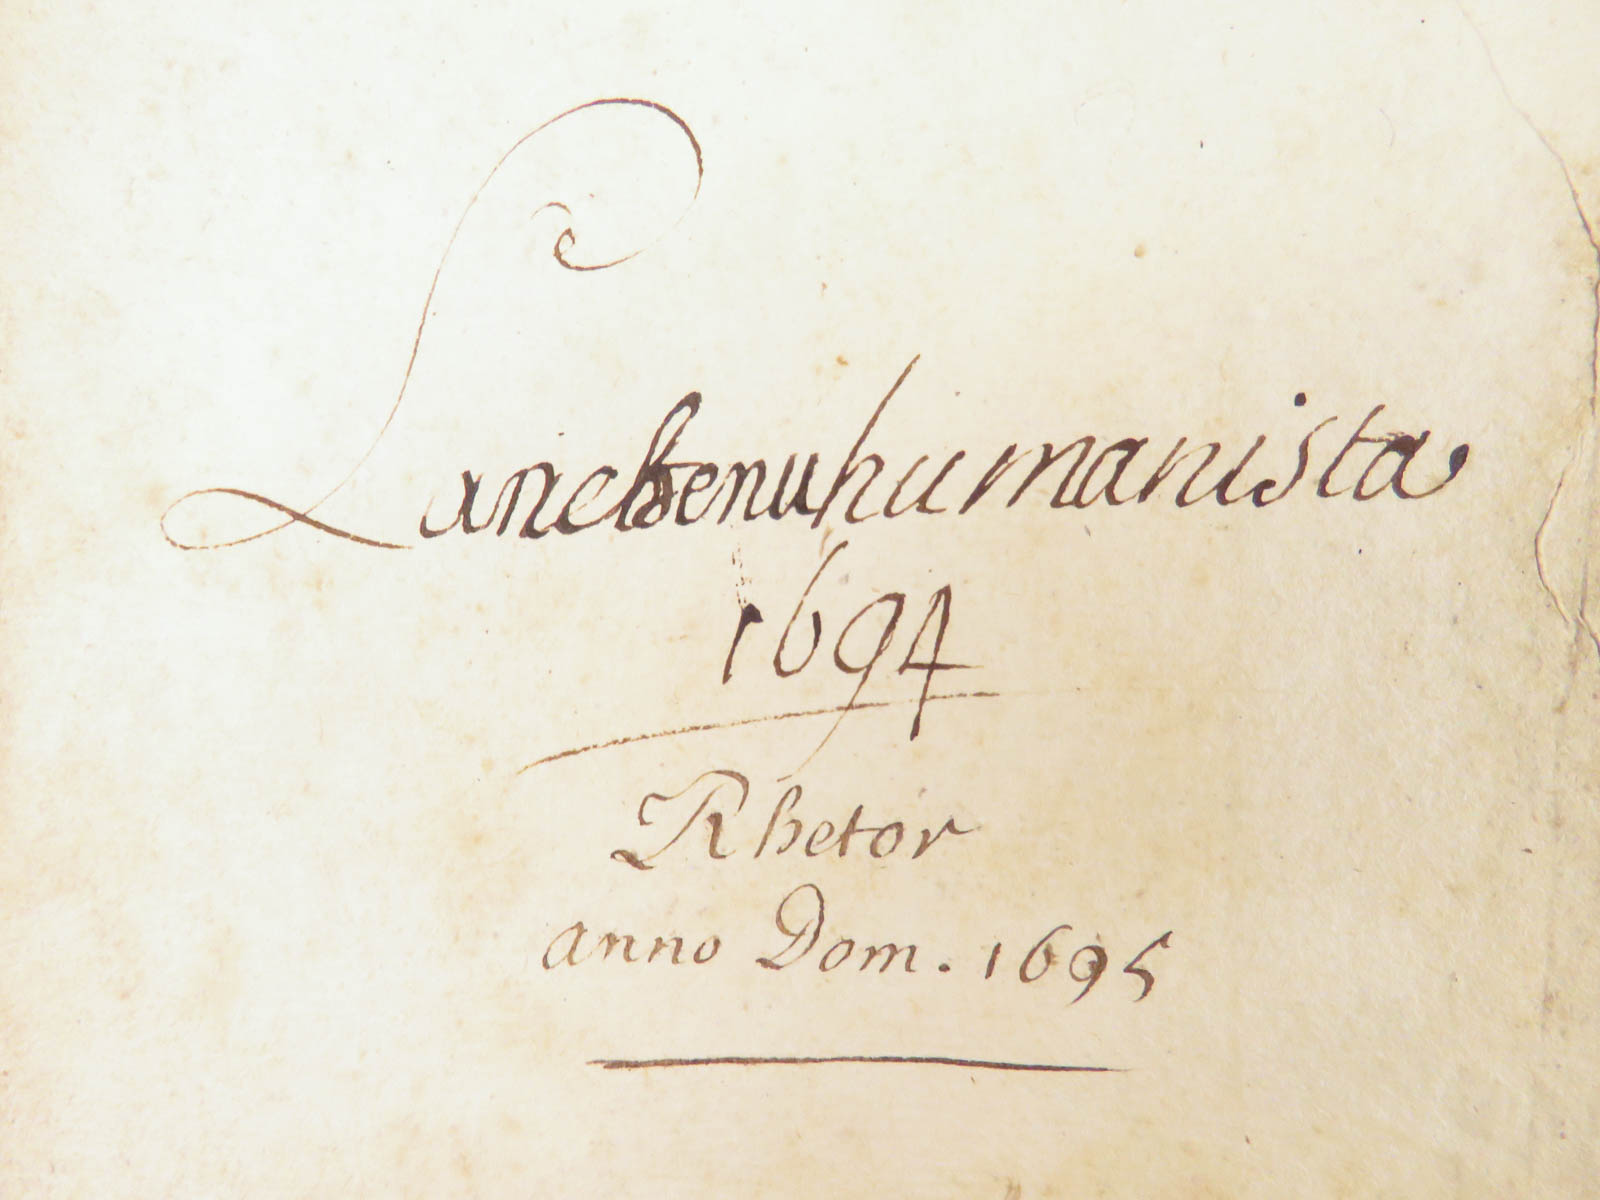 humanista
1694
Rhetor
anno Dom. 1695